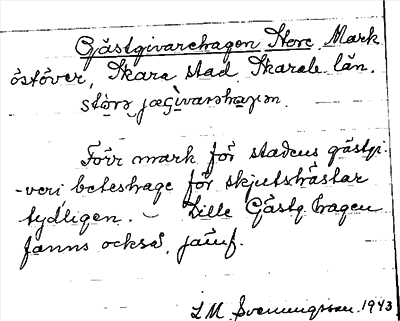 Gästgivarehagen Store Mark
öståver, Skara stad Skarab. län.
Förr mark för stadens gästgi-
-veri beteshage för skjutshästar
tydligen. – Lille Gästg. hagen
fanns också, jämf.
L M Svenungsson. 1943